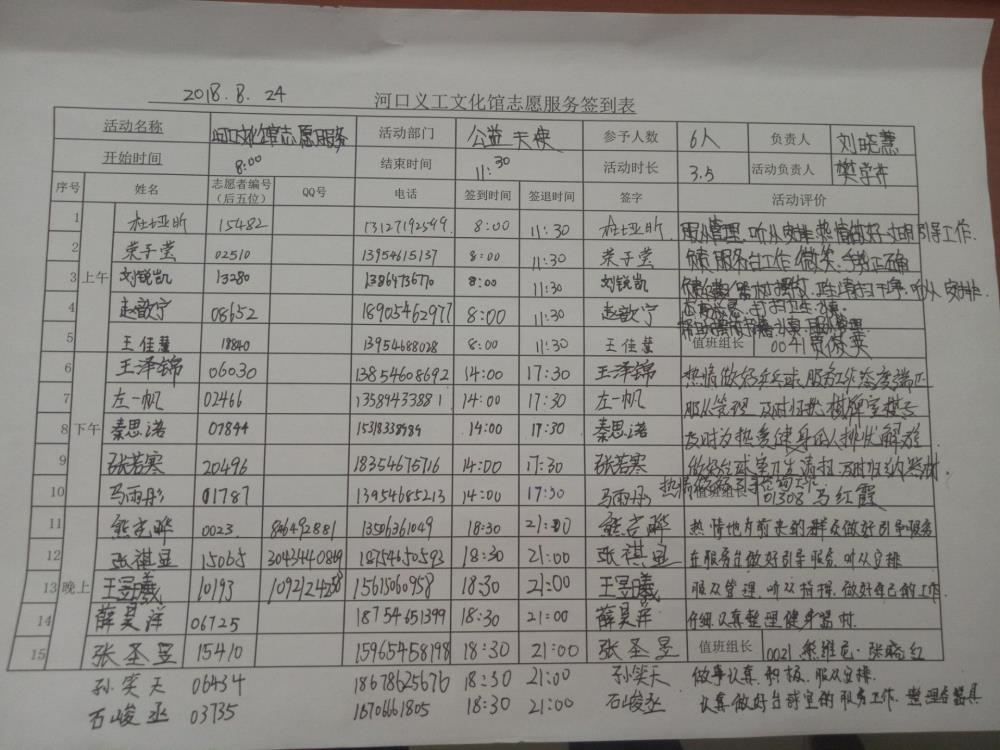 2018.8.24 河口义工文化馆志愿服务签到表
活动名称 河口文化馆志愿服务 活动部门 公益天使 参予人数 6人 负责人 刘晓慧
开始时间 8:00 结束时间 11:30 活动时长 3.5 活动负责人 樊学卉
序号 姓名 志愿者编号（后五位） QQ号 电话 签到时间 签退时间 签字 活动评价
上午
1 杜亚昕 15482 13127192599 8:00 11:30 杜亚昕 服从管理,听从安排,热情做好文明引导工作.
2 荣子莹 02510 13954615137 8:00 11:30 荣子莹 负责服务台工作,微笑,手势正确
3 刘锐凯 13280 13864736770 8:00 11:30 刘锐凯 听从安排.
4 赵歆宁 08652 18905462977 8:00 11:30 赵歆宁
5 王佳慧 18840 13954688028 8:00 11:30 王佳慧 值班组长 0041贾俊英
下午
6 王泽锦 06030 13854608692 14:00 17:30 王泽锦 热情做好乒乓球服务工作态度端正
7 左一帆 02466 13589433881 14:00 17:30 左一帆 服从管理 及时归扰棋牌室棋子
8 秦思诺 07844 15318338989 14:00 17:30 秦思诺 及时为热爱健身的人排忧解难
9 张若寒 20496 18354675716 14:00 17:30 张若寒 做好台球室卫生清扫,及时归纳器材.
10 马雨彤 01787 13954685213 14:00 17:30 马雨彤 热情做好引导咨询工作 值班组长 01308 马红霞
晚上
11 熊吉晔 0023. 846492881 13506361049 18:30 21:00 熊吉晔 热情地为前来的群众做好引导服务
12 张祺显 15065 3042440849 18754650593 18:30 21:00 张祺显 在服务台做好引导服务.听从安排
13 王昱曦 10193 1092124258 15615060958 18:30 21:00 王昱曦 服从管理.听从指挥.做好自己的工作.
14 薛昊洋 06725 18754651399 18:30 21:00 薛昊洋 仔细认真整理健身器材.
15 张圣昱 15410 15965458198 18:30 21:00 张圣昱 值班组长 0021 熊维色·张晓红
孙笑天 06434 18678625676 18:30 21:00 孙笑天 做事认真.积极.服从安排.
石峻丞 03735 16706661805 18:30 21:00 石峻丞 认真做好台球室的服务工作.整理各器具